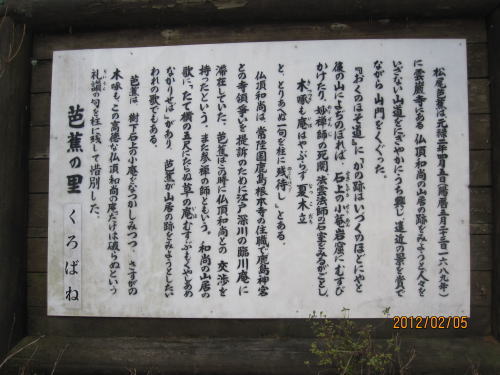 松尾芭蕉は、元禄二年四月五日(陽暦五月二十三日一六八九年)
に雲巌寺にある仏頂和尚の山居の跡をみようと人々を
いざない山道をにぎやかにうち興じ、道辺の景を賞で
ながら山門をくぐった。
『おくのほそ道』に「かの跡はいづくのほどにやと
後の山によぢのぼれば、石上の小菴岩窟にむすび
かけたり。妙禅師の死関、法雲法師の石室をみるがごとし。
木啄も庵はやぶらず夏木立
と、とりあへぬ一句を柱に残侍し」とある。
仏頂和尚は、常陸国鹿島根本寺の住職で鹿島神宮
との寺領争いを提訴のために江戸深川の臨川庵に
滞在していた。芭蕉はこの時に仏頂和尚との交渉を
持ったという。また参禅の師ともいう。和尚の山居の
歌に、「たて横の五尺にたらぬ草の庵むすぶもくやしあめ
なかりせば」があり、芭蕉が山居の跡をみようとしたい
われの歌でもある。
芭蕉は、樹下石上の小庵をなつかしみつつ、さすがの
木啄も、この高徳な仏頂和尚の庵だけは破らぬという
礼讃の句を柱に残して惜別した。
芭蕉の里 くろばね
2012/02/05